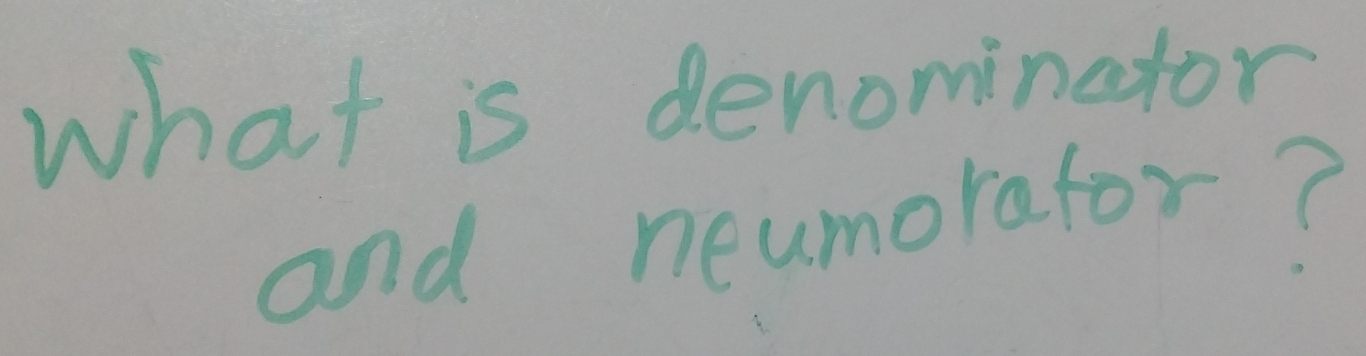 what is denominator
and neumorator?